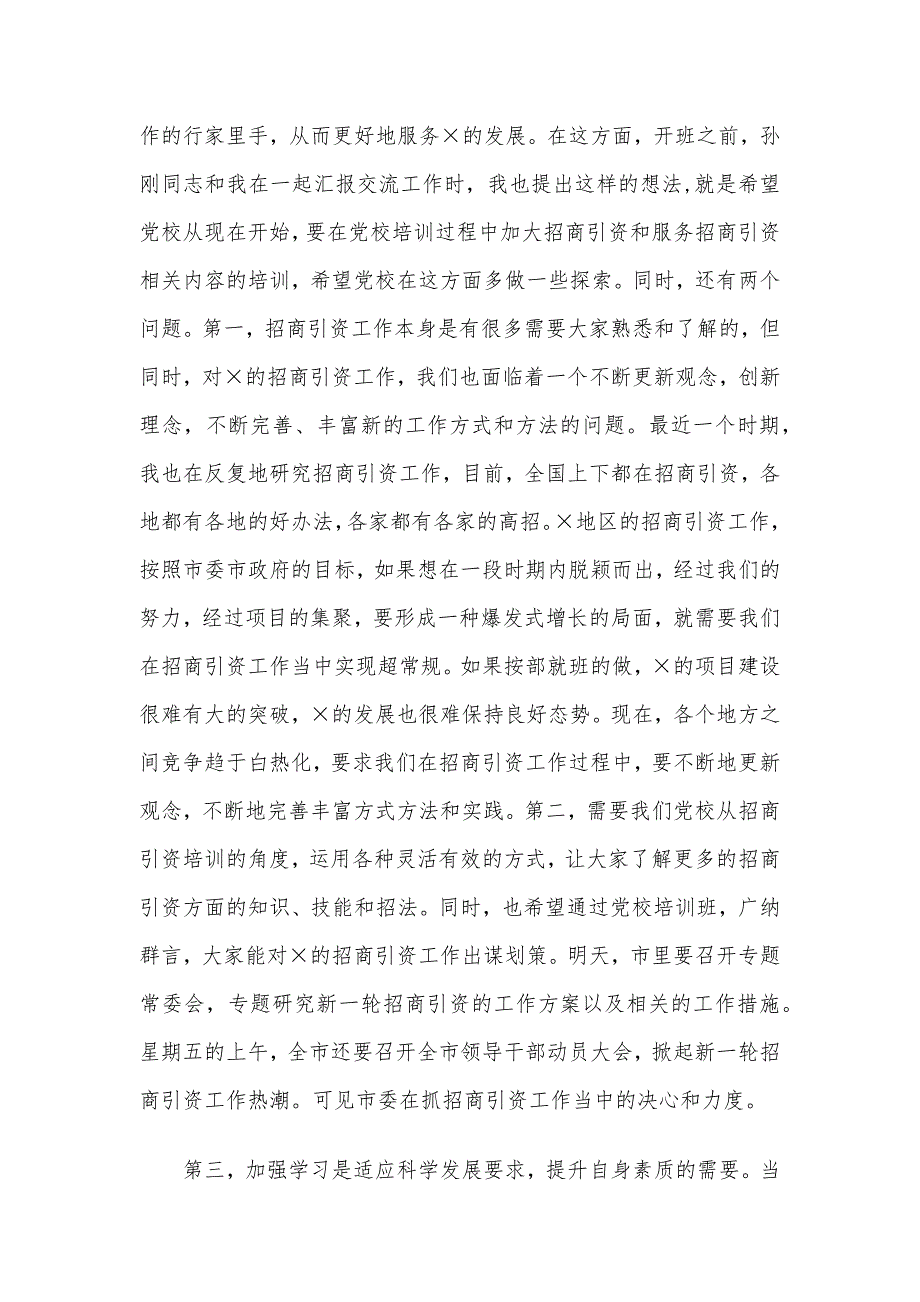 作的行家里手，从而更好地服务×的发展。在这方面，开班之前，孙
刚同志和我在一起汇报交流工作时，我也提出这样的想法,就是希望
党校从现在开始，要在党校培训过程中加大招商引资和服务招商引资
相关内容的培训，希望党校在这方面多做一些探索。同时，还有两个
问题。第一，招商引资工作本身是有很多需要大家熟悉和了解的，但
同时，对×的招商引资工作，我们也面临着一个不断更新观念，创新
理念，不断完善、丰富新的工作方式和方法的问题。最近一个时期，
我也在反复地研究招商引资工作，目前，全国上下都在招商引资，各
地都有各地的好办法,各家都有各家的高招。×地区的招商引资工作，
按照市委市政府的目标，如果想在一段时期内脱颖而出，经过我们的
努力，经过项目的集聚，要形成一种爆发式增长的局面，就需要我们
在招商引资工作当中实现超常规。如果按部就班的做，×的项目建设
很难有大的突破，×的发展也很难保持良好态势。现在，各个地方之
间竞争趋于白热化，要求我们在招商引资工作过程中，要不断地更新
观念，不断地完善丰富方式方法和实践。第二，需要我们党校从招商
引资培训的角度，运用各种灵活有效的方式，让大家了解更多的招商
引资方面的知识、技能和招法。同时，也希望通过党校培训班，广纳
群言，大家能对×的招商引资工作出谋划策。明天，市里要召开专题
常委会，专题研究新一轮招商引资的工作方案以及相关的工作措施。
星期五的上午，全市还要召开全市领导干部动员大会，掀起新一轮招
商引资工作热潮。可见市委在抓招商引资工作当中的决心和力度。
第三，加强学习是适应科学发展要求，提升自身素质的需要。当